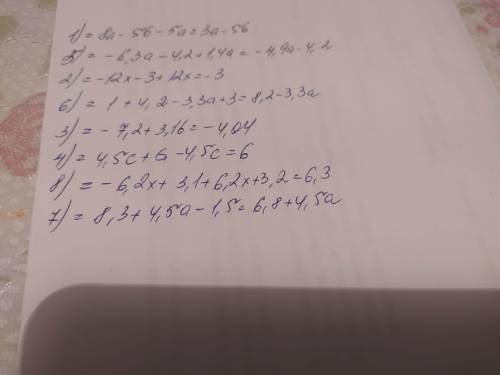 1) = 8a - 5б - 5a = 3a - 5б
5) = - 6,3a - 4,2 + 1,4a = - 4,9a - 4,2
2) = -12x - 3 + 12x = -3
6) = 1 + 4,2 - 3,3a + 3 = 8,2 - 3,3a
3) = - 7,2 + 3,16 = - 4,04
4) = 4,5c + 6 - 4,5c = 6
8) = - 6,2x + 3,1 + 6,2x + 3,2 = 6,3
7) = 8,3 + 4,5a - 1,5 = 6,8 + 4,5a